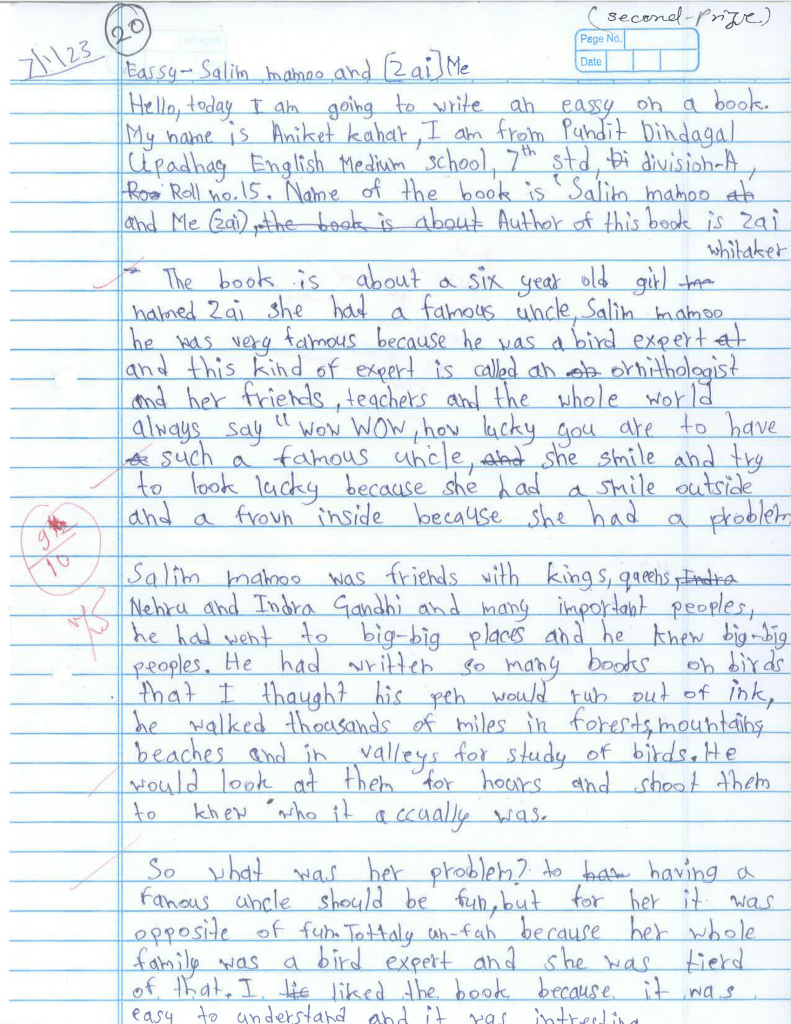 (second-Prize)
20
7/1/23
Page No.
Date
Eassy - Salim mamoo and [Zai] Me
Hello, today I am going to write an eassy on a book.
My name is Aniket kahar, I am from Pundit Dindagal
Upadhag English Medium school, 7th std, bi division-A,
Roo Roll no.15. Name of the book is 'Salim mamoo ah
and Me (zai), the book is about Author of this book is zai
whitaker
The book is about a six year old girl
named Zai she had a famous uncle, Salim mamoo
he was very famous because he was a bird expert at
and this kind of expert is called an ornithologist
and her friends, teachers and the whole world
always say "WOW WOW, how lucky you are to have
such a famous uncle, and she smile and try
to look lucky because she had a smile outside
and a frown inside because she had a problem
9½/10
Salim mamoo was friends with kings, queens, Indra
Nehru and Indra Gandhi and many important peoples,
he had went to big-big places and he knew big-big
peoples. He had written so many books on birds
that I thaught his pen would run out of ink,
he walked thousands of miles in forests, mountains,
beaches and in valleys for study of birds. He
would look at them for hours and shoot them
to knew who it accually was.
So what was her problem? to having a
famous uncle should be fun, but for her it was
opposite of fun. Tottaly un-fun because her whole
family was a bird expert and she was tierd
of that. I liked the book because it was
easy to understand and it was intresting